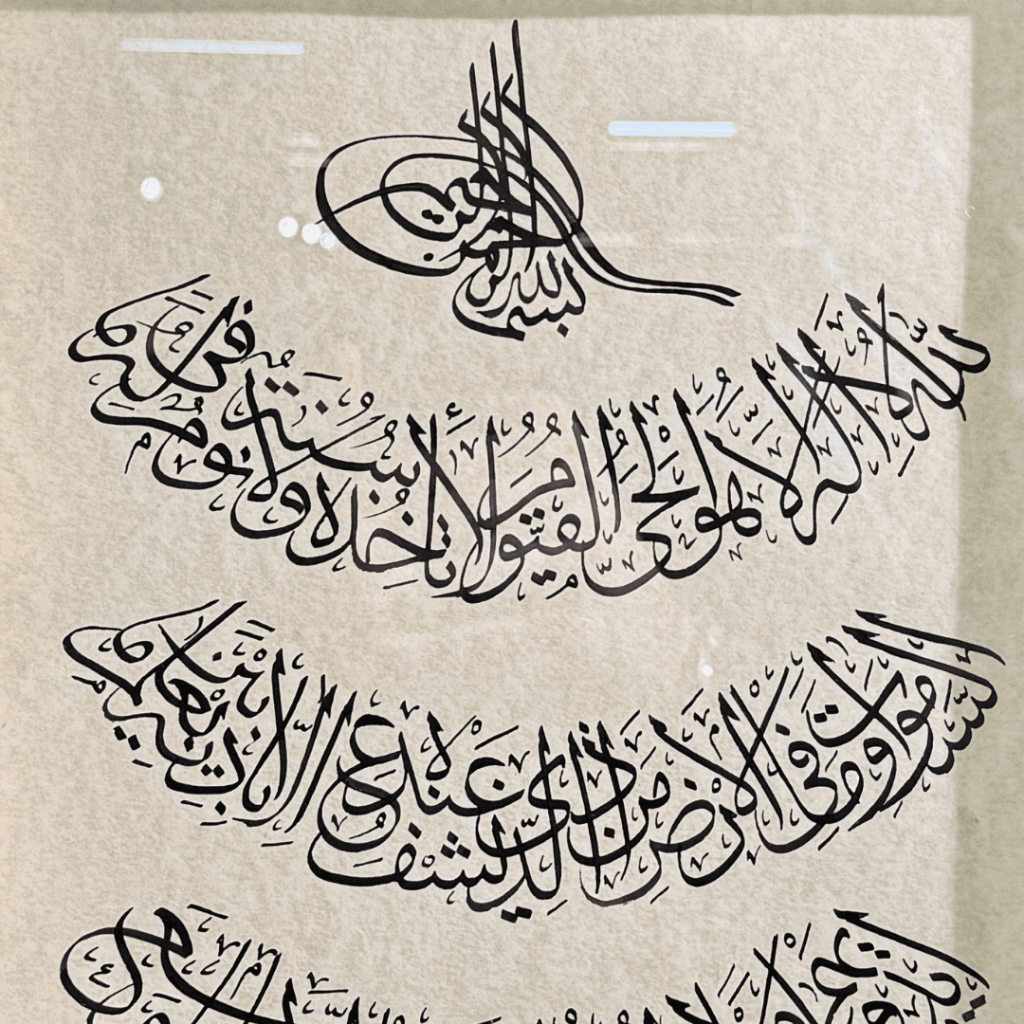 بسم الله الرحمن الرحيم
الله لا اله الا هو الحي القيوم لا تأخذه سنة ولا نوم له ما في
السموات وما في الارض من ذا الذي يشفع عنده الا باذنه يعلم ما بين